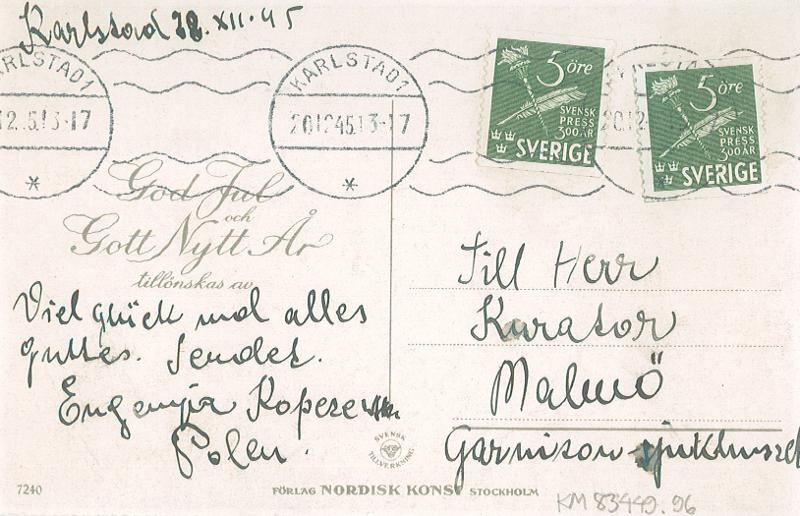 Karlstad 18.XII.45
KARLSTAD 1
12.5.13-17
KARLSTAD 1
201245.13-17
KARLSTAD
2012
5 öre
SVENSK
PRESS
300 ÅR
SVERIGE
5 öre
SVENSK
PRESS
300 ÅR
SVERIGE
God Jul
och
Gott Nytt År
tillönskas av
Viel glück und alles
guttes. Sendet.
Eugenija
Polen.
Till Herr
Kurator
Malmö
Garnison sjukhuset
SVENSK
TILLVERKNING
7240
FÖRLAG NORDISK KONST STOCKHOLM
KM 83449.96